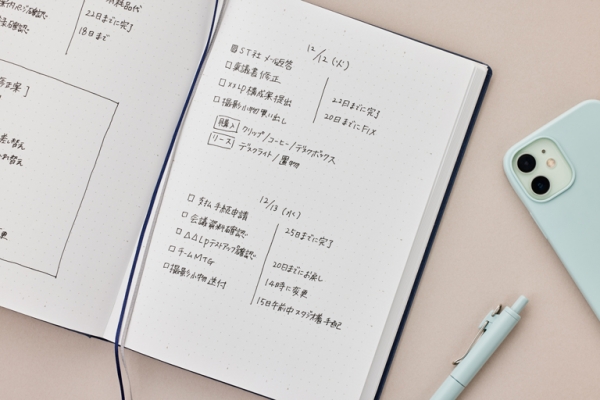 22日までに完了
18日まで
12/12(火)
ST社 メール返答
稟議書修正
××Lp構成案提出
22日までに完了
撮影小物買い出し
20日までにFIX
購入 クリップ/コーヒー/デスクボックス
リース デスクライト/置物
12/13(水)
支払手続申請
25日までに完了
会議資料確認
△△Lpテストアップ確認
20日までにお戻し
チームMTG
14時に変更
撮影小物送付
15日午前中スタジオ着